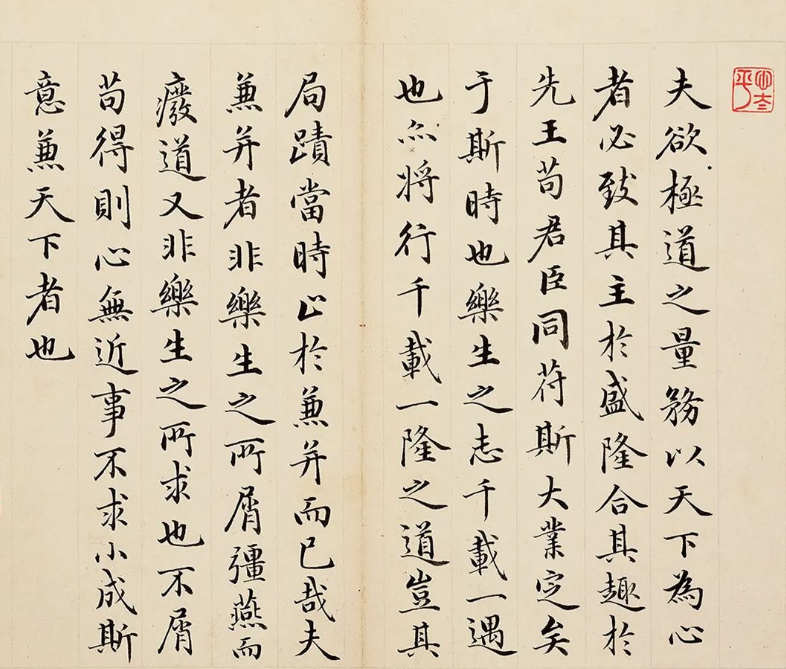 夫欲極道之量務以天下為心
者必致其主於盛隆合其趣於
先王苟君臣同苻斯大業定矣
于斯時也樂生之志千載一遇
也亦將行千載一隆之道豈其
局蹟當時止於兼并而已哉夫
兼并者非樂生之所屑彊燕而
癈道又非樂生之所求也不屑
苟得則心無近事不求小成斯
意兼天下者也